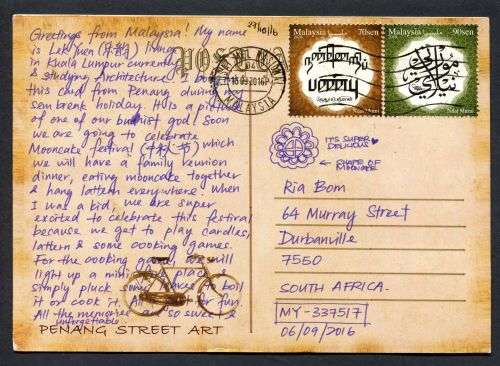 29/10/16
Greetings from Malaysia! My name
is Lek Yuen living
in Kuala Lumpur currently
& studying Architecture. I
this card from Penang during my
sem break holiday. This is a picture
of one of our budhist god! Soon
we are going to celebrate
Mooncake festival (中秋节) which
we will have a family reunion
dinner, eating mooncake together
& hang lattern everywhere. When
I was a kid, we are super
excited to celebrate this festival
because we get to play candles,
lattern & some cooking games.
For the cooking game, we will
light up a mini place
simply pluck some & boil
it or cook it. All for fun.
All the memories are so sweet &
unforgettable
PENANG STREET ART
POST
18 09 2016
MALAYSIA
Malaysia 70sen
நன்னெறிப்
பண்பு
Nilai Murni
Malaysia 90sen
Nilai Murni
IT'S SUPER
DELICIOUS
← SHAPE OF
MOONCAKE
Ria Bom
64 Murray Street
Durbanville
7550
SOUTH AFRICA.
MY-337517
06/09/2016